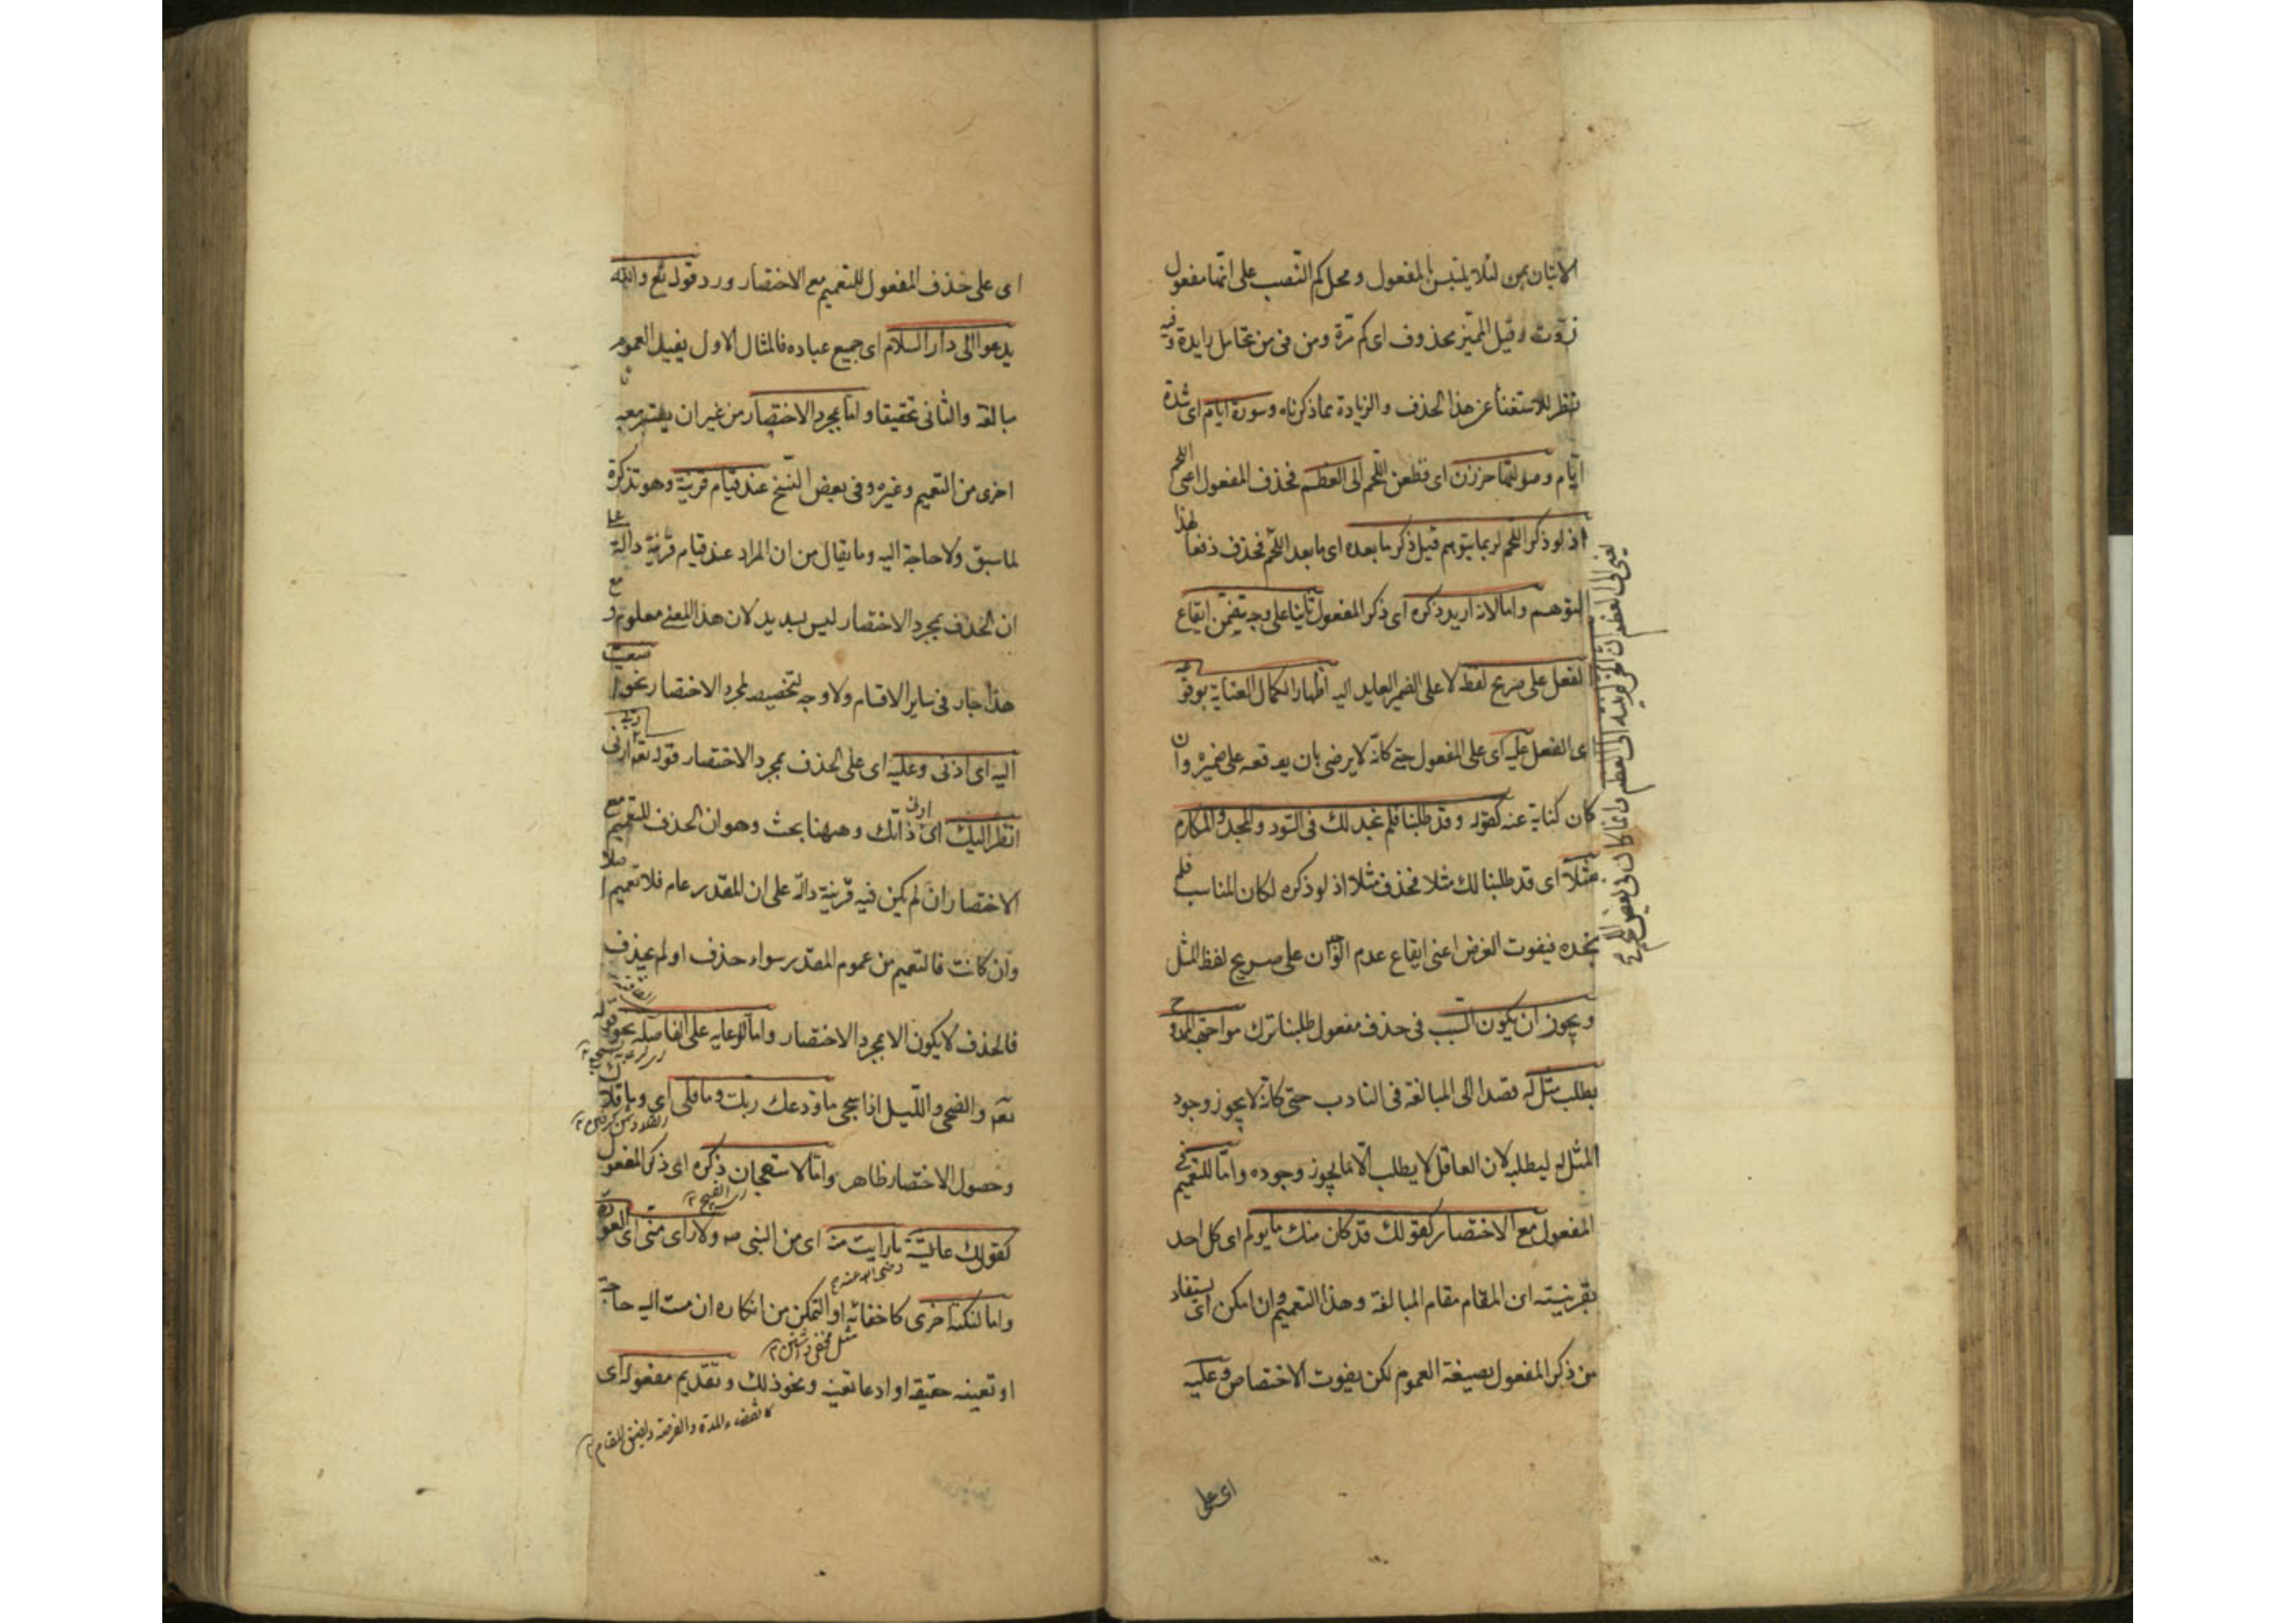 الاتيان بمن لئلا يلتبس بالمفعول ومحل كم النصب على انها مفعول
ذدت وقيل المميز محذوف اى كم مرة ومن فى من تحامل زايدة وفيه
نظر للاستغناء عن هذا الحذف والزيادة بما ذكرناه وسورة ايام اى شدة
ايام وصولتها حززن اى قطعن اللحم الى العظم فحذف المفعول اعنى اللحم
اذ لو ذكر اللحم لربما يتوهم قبل ذكر ما بعده اى ما بعد اللحم فحذف دفعا لهذا
التوهم واما لانه اريد ذكره اى ذكر المفعول ثانيا على وجه يتضمن ايقاع
الفعل على صريح لفظه لا على الضمير العايد اليه اظهارا لكمال العناية بوقوعه
اى الفعل عليه اى على المفعول حتى كانه لا يرضى بان يوقعه على ضميره وان
كان كناية عنه كقوله وقد طلبنا فلم نجد لك فى السودد والمجد والمكارم
مثلا اى قد طلبنا لك مثلا فحذف مثلا اذ لو ذكره لكان المناسب فلم
نجده فيفوت الغرض اعنى ايقاع عدم الوجدان على صريح لفظ المثل
ويجوز ان يكون السبب فى حذف مفعول طلبنا ترك مواجهة الممدوح
بطلب مثل له قصدا الى المبالغة فى التادب حتى كانه لا يجوز وجود
المثل له ليطلبه لان العاقل لا يطلب الا ما يجوز وجوده واما للتعميم فى
المفعول مع الاختصار كقولك قد كان منك ما يولم اى كل احد
بقرينته ان المقام مقام المبالغة وهذا التعميم وان امكن ان يستفاد
من ذكر المفعول بصيغة العموم لكن يفوت الاختصاص وعليه
اى على
يعنى الى العظم ان الحز لم ينته الى العظم وانما كان فى بعض اللحم
اى على حذف المفعول للتعميم مع الاختصار ورد قوله تع والله
يدعوا الى دار السلام اى جميع عباده فالمثال الاول يفيد العموم
مبالغة والثانى تحقيقا واما لمجرد الاختصار من غير ان يعتبر معه
اخرى من التعميم وغيره وفى بعض النسخ عند قيام قرينة وهو تذكرة
لما سبق ولا حاجة اليه وما يقال من ان المراد عند قيام قرينة دالة على
ان الحذف لمجرد الاختصار ليس بسديد لان هذا المعنى معلوم و مع
هذا جار فى ساير الاقسام ولا وجه لتخصيصه لمجرد الاختصار نحو اصغيت
اليه اى اذنى وعليه اى على الحذف لمجرد الاختصار قوله تعه رب ارنى
انظر اليك اى ارنى ذاتك وههنا بحث وهو ان الحذف للتعميم مع
الاختصار ان لم يكن فيه قرينة دالة على ان المقدر عام فلا تعميم اصلا
وان كانت فالتعميم من عموم المقدر سواء حذف او لم يحذف
فالحذف لا يكون الا لمجرد الاختصار واما للرعاية على الفاصلة نحو قوله
تعه والضحى والليل اذا سجى ما ودعك ربك وما قلى اى وما قلاك
وحصول الاختصار ظاهر واما لاستهجان ذكره اى ذكر المفعول
كقولك عايشة ما رايت منه اى من النبى صه ولا راى منى اى العورة
رضى الله عنه
واما لنكتة اخرى كاخفائه او التمكن من انكاره ان مست اليه حاجة
او تعينه حقيقة او ادعا تعينه ونحو ذلك وتقديم مفعوله اى